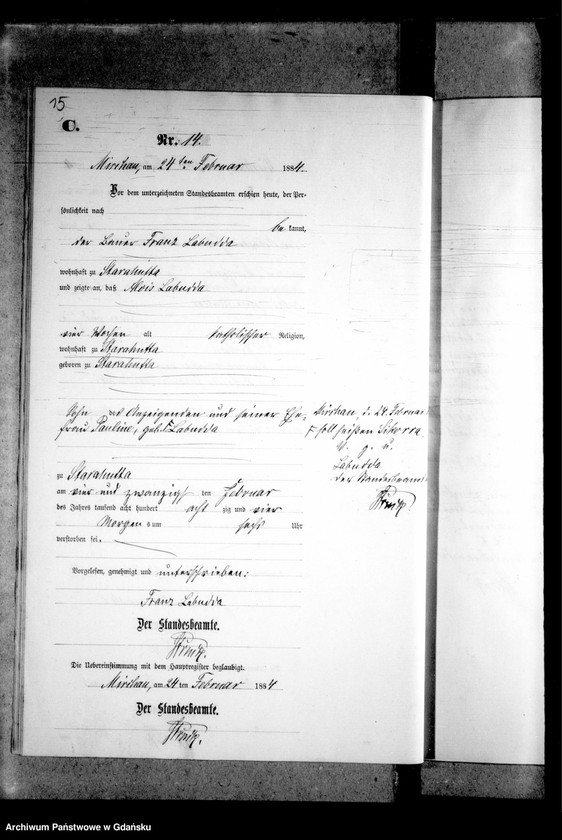 15
C.
Nr. 14.
Mirchau, am 24 ten Februar 1884.
Vor dem unterzeichneten Standesbeamten erschien heute, der Per-
sönlichkeit nach
be kannt,
der Bauer Franz Labudda
wohnhaft zu Starahutta
und zeigte an, daß Alois Labudda
vier Wochen alt katholischer Religion,
wohnhaft zu Starahutta
geboren zu Starahutta
Sohn des Anzeigenden und seiner Ehe-
frau Pauline, geb. Labudda
zu Starahutta
am vier und zwanzigsten Februar
des Jahres tausend acht hundert acht zig und vier
Morgens um sechs Uhr
verstorben sei.
Vorgelesen, genehmigt und unterschrieben:
Franz Labudda
Der Standesbeamte.
Die Uebereinstimmung mit dem Hauptregister beglaubigt.
Mirchau, am 24 ten Februar 1884
Der Standesbeamte.
Mirchau, d. 24. Februar
soll heißen Sikorra.
v. g. u.
Labudda
Der Standesbeamte
Archiwum Państwowe w Gdańsku